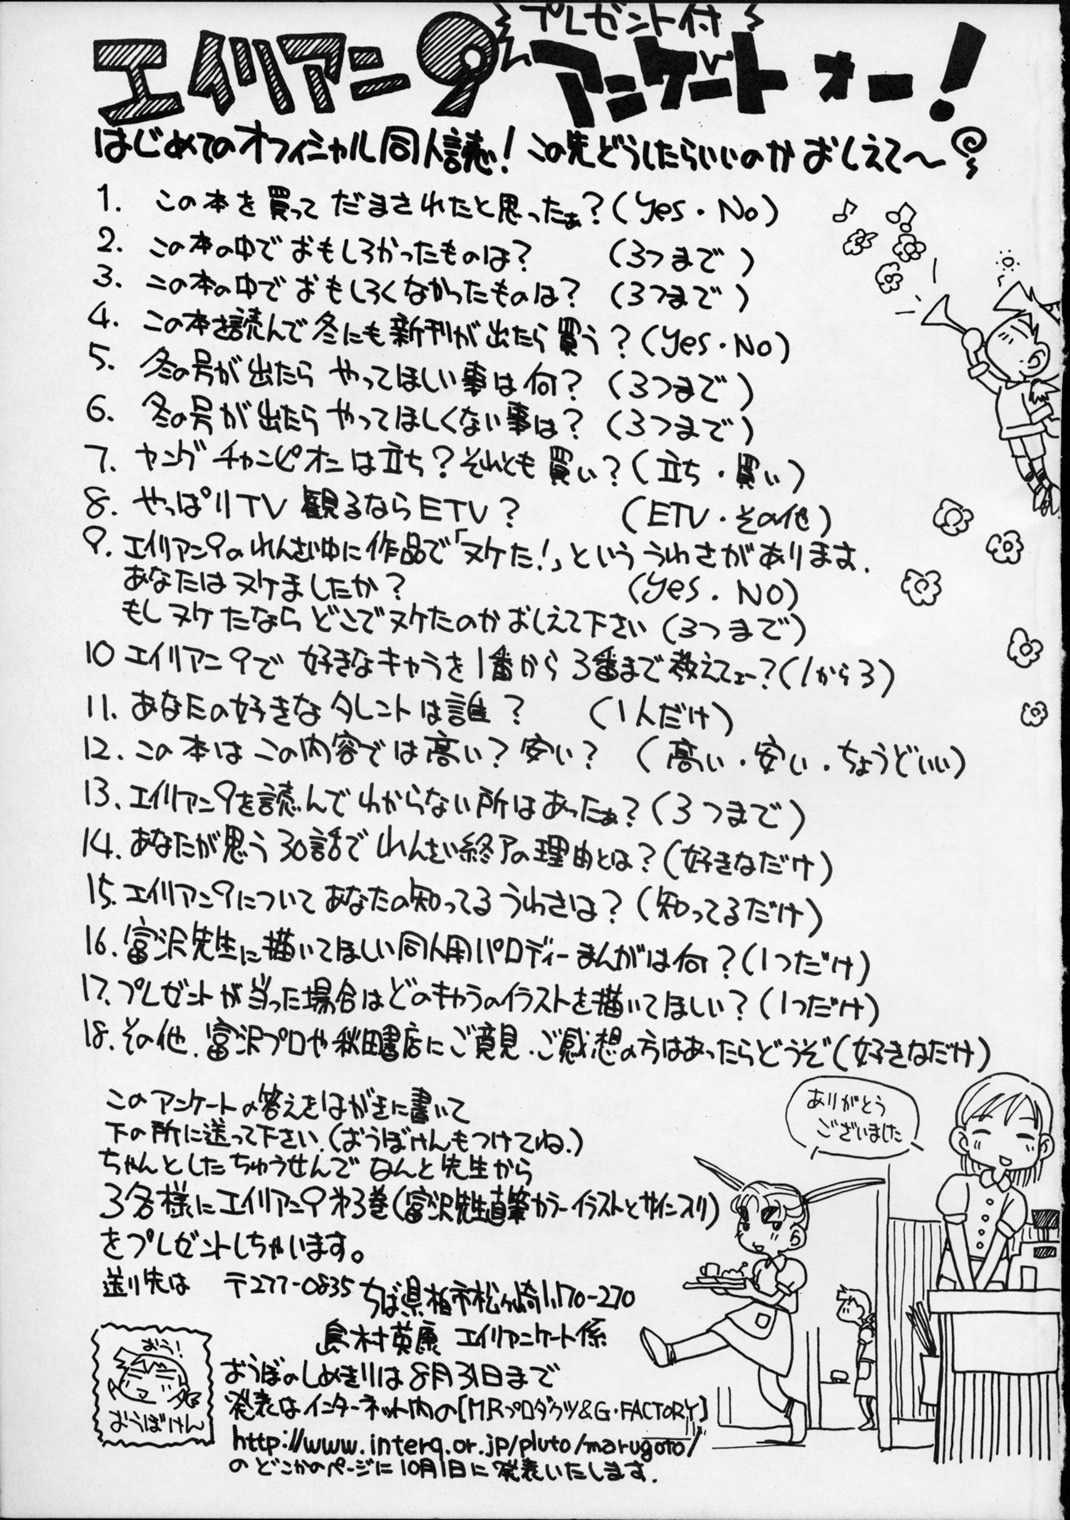 プレゼント付
エイリアン9 アンケートォー!
はじめてのオフィシャル同人誌! この先どうしたらいいのか おしえて〜
1. この本を買って だまされたと思ったぁ?(Yes・No)
2. この本の中で おもしろかったものは? (3つまで)
3. この本の中で おもしろくなかったものは? (3つまで)
4. この本を読んで 冬にも 新刊が出たら 買う?(Yes・No)
5. 冬の号が出たら やってほしい事は何? (3つまで)
6. 冬の号が出たら やってほしくない事は? (3つまで)
7. ヤングチャンピオンは立ち?それとも買い?(立ち・買い)
8. やっぱりTV 観るならETV? (ETV・その他)
9. エイリアン9のれんさい中に作品で「ヌケた!」といううわさがあります.
あなたはヌケましたか? (Yes. NO)
もしヌケたなら どこでヌケたのか おしえて下さい(3つまで)
10 エイリアン9で 好きなキャラを1番から3番まで教えてェー?(1から3)
11. あなたの好きな タレントは誰? (1人だけ)
12. この本は この内容では高い?安い? (高い・安い・ちょうどいい)
13. エイリアン9を読んで わからない所はあったぁ?(3つまで)
14. あなたが思う30話で れんさい終了の理由とは?(好きなだけ)
15. エイリアン9について あなたの知ってる うわさは?(知ってるだけ)
16. 富沢先生に描いてほしい同人用パロディーまんがは何?(1つだけ)
17. プレゼントが当った場合はどのキャラのイラストを描いてほしい?(1つだけ)
18. その他、富沢プロや秋田書店にご意見・ご感想の方はあったらどうぞ(好きなだけ)
このアンケートの答えをはがきに書いて
下の所に送って下さい.(おうぼけんもつけてね.)
ちゃんとしたちゅうせんで なんと先生から
3名様にエイリアン9 第3巻(富沢先生直筆カラーイラストとサイン入り)
をプレゼントしちゃいます。
送り先は 〒277-0835 ちば県柏市松ヶ崎1170-270
島村英康 エイリアンケート係
おうぼのしめきりは8月31日まで
発表はインターネット内の[MRプロダクツ&G・FACTORY]
http://www.interq.or.jp/pluto/marugoto/
のどこかのページに10月1日に発表いたします.
おう!
おうぼけん
ありがとう
ございました